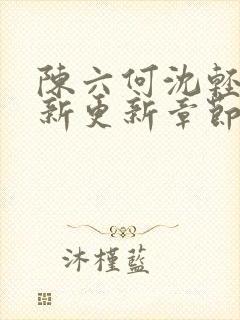 陳六何沈輕
新更新章節
沐槿藍